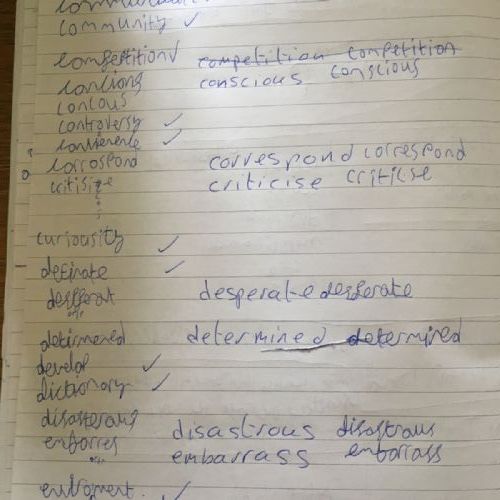 community ✓
competition ✓ competition competition
concious conscious conscious
concous
controversy ✓
convenience ✓
corrospond correspond correspond
critisize criticise criticise
curiousity ✓
definate ✓
desperat desperate desperate
deteirmened determined determined
develop ✓
dictionary ✓
disasterous disastrous disastrous
embarres embarrass embarrass
✓